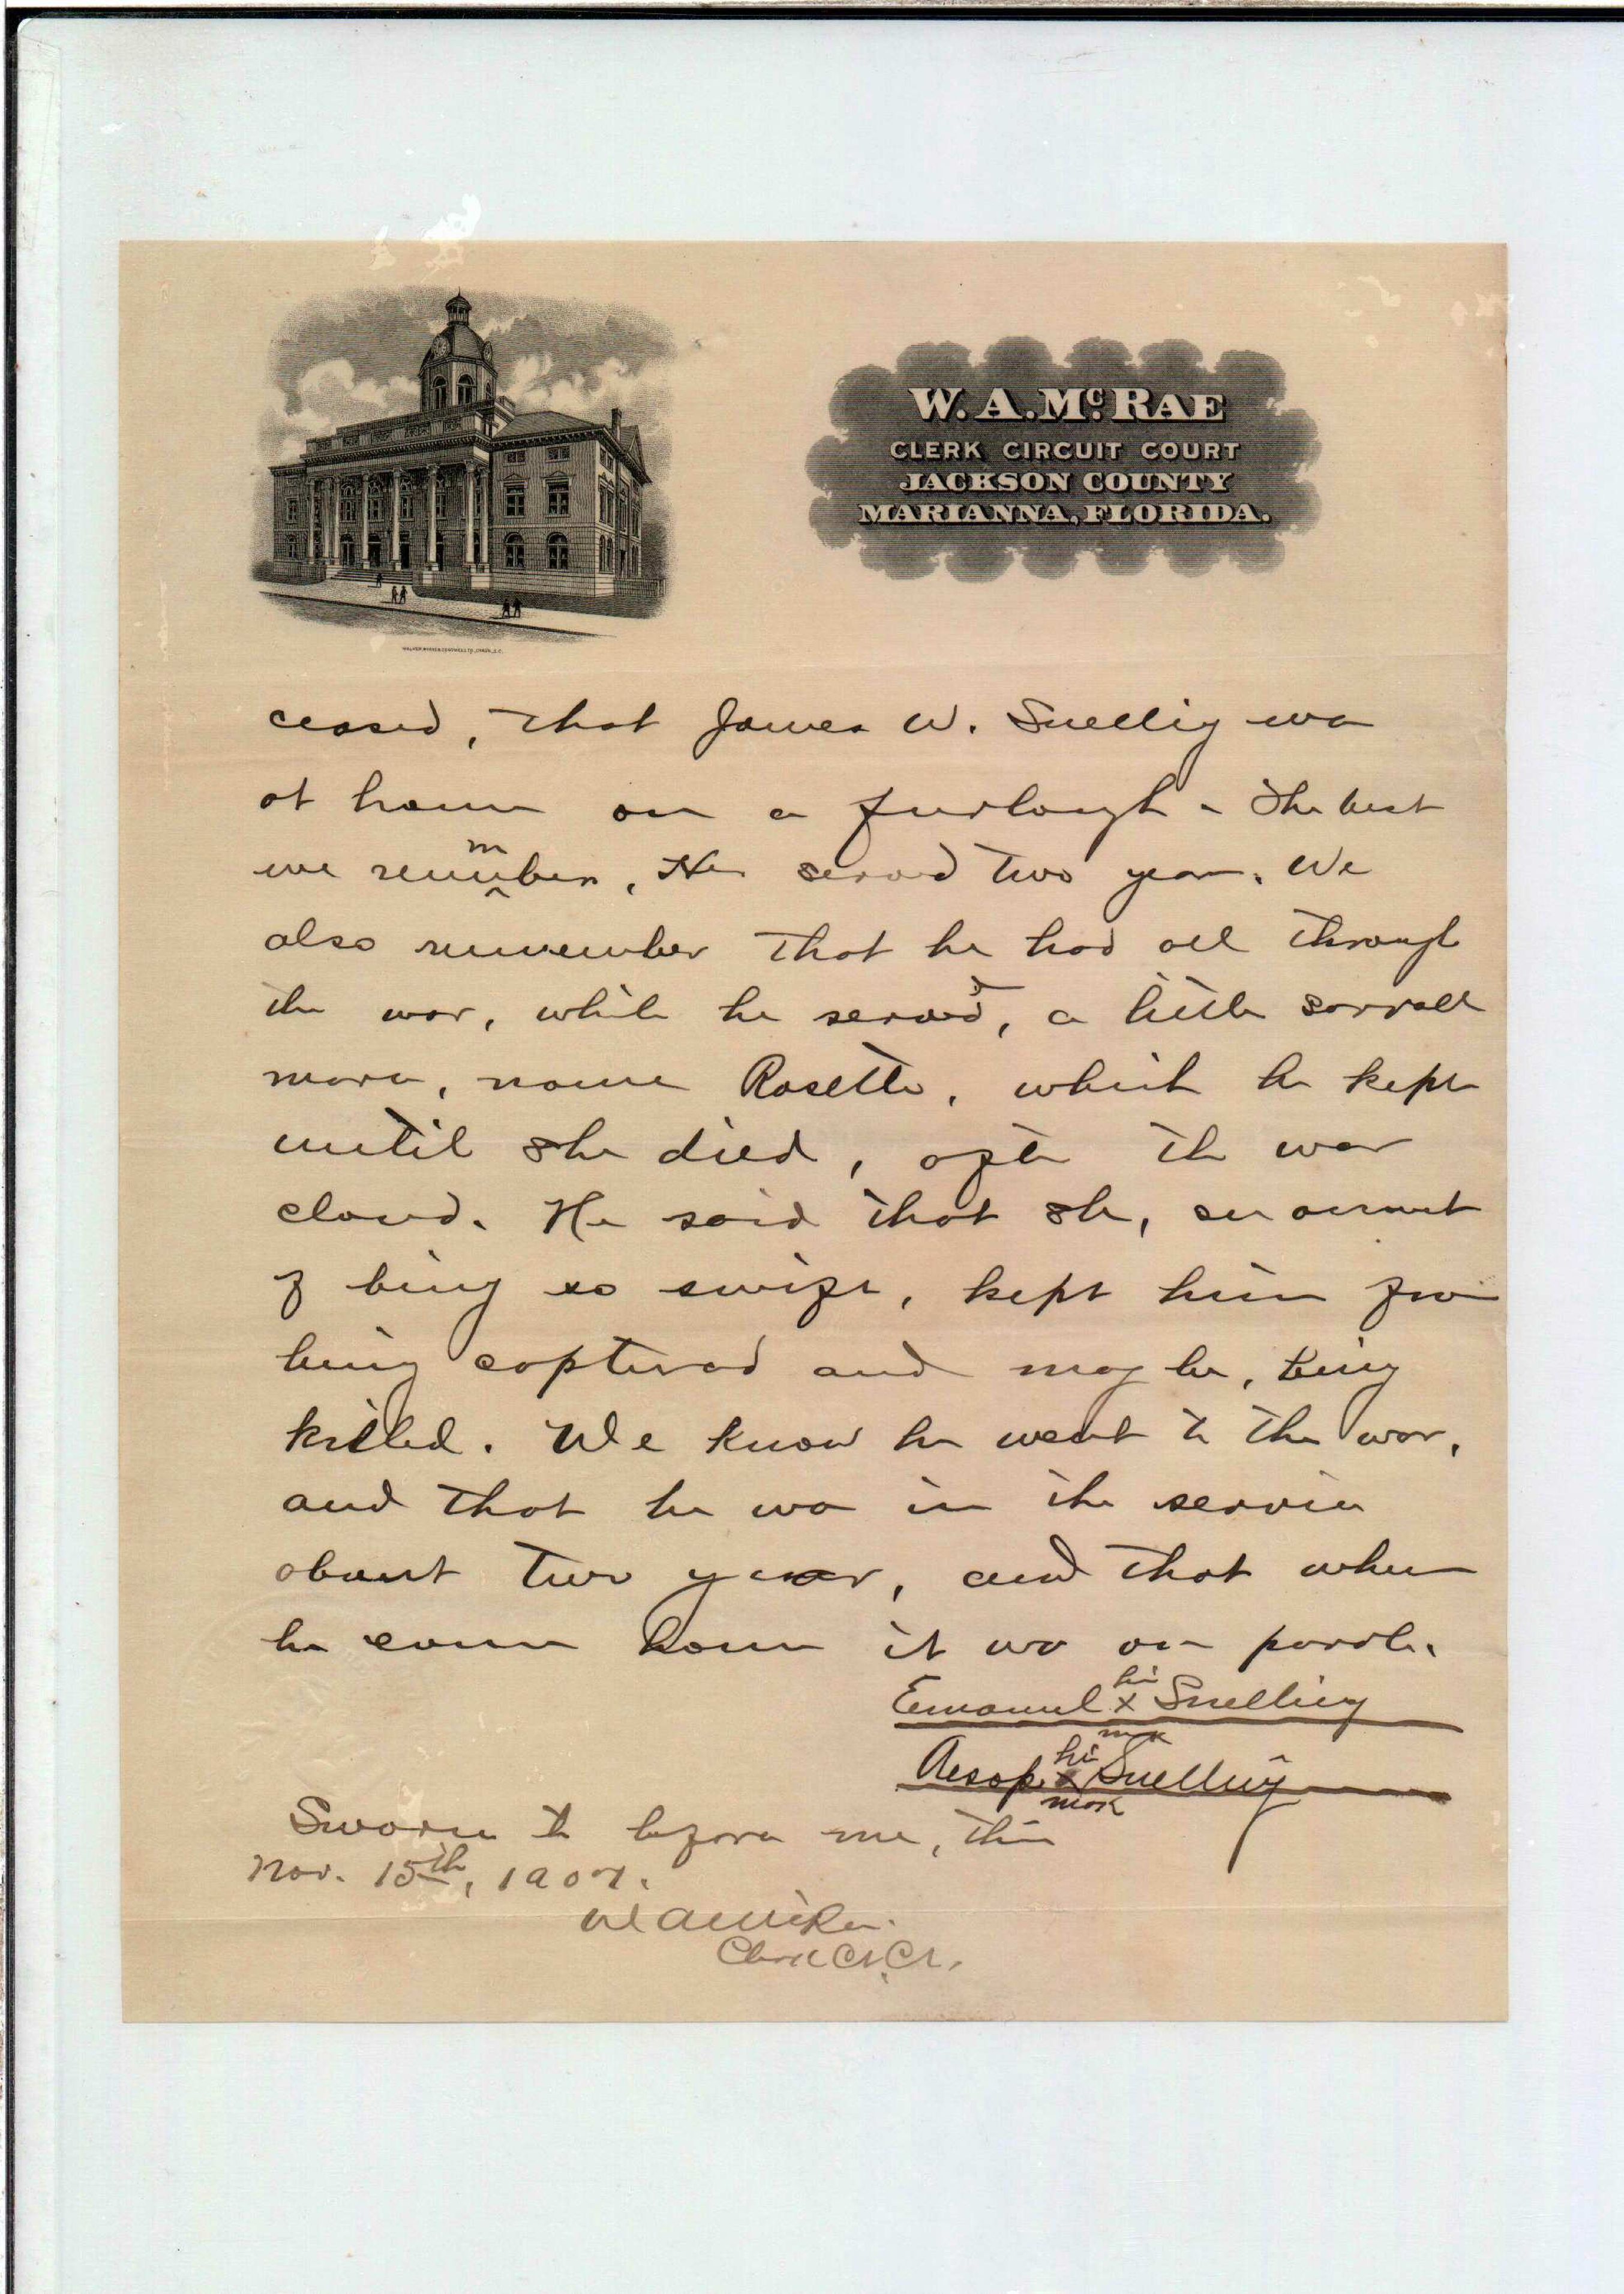 W. A. McRAE
CLERK CIRCUIT COURT
JACKSON COUNTY
MARIANNA, FLORIDA.
ceased, that James W. Snelling was
at home on a furlough - The best
we remember, He served two years. We
also remember that he had all through
the war, while he served, a little sorrell
mare, name Rosetta, which he kept
until she died, after the war
closed. He said that she, on account
of being so swift, kept him from
being captured and may be, being
killed. We know he went to the war,
and that he was in the service
about two years, and that when
he came home it was on parole.
his
Emanuel x Snelling
mark
his
Aesop x Snelling
mark
Sworn to before me, this
Nov. 15th, 1907.
W A McRae
Clerk Ct. Ct.